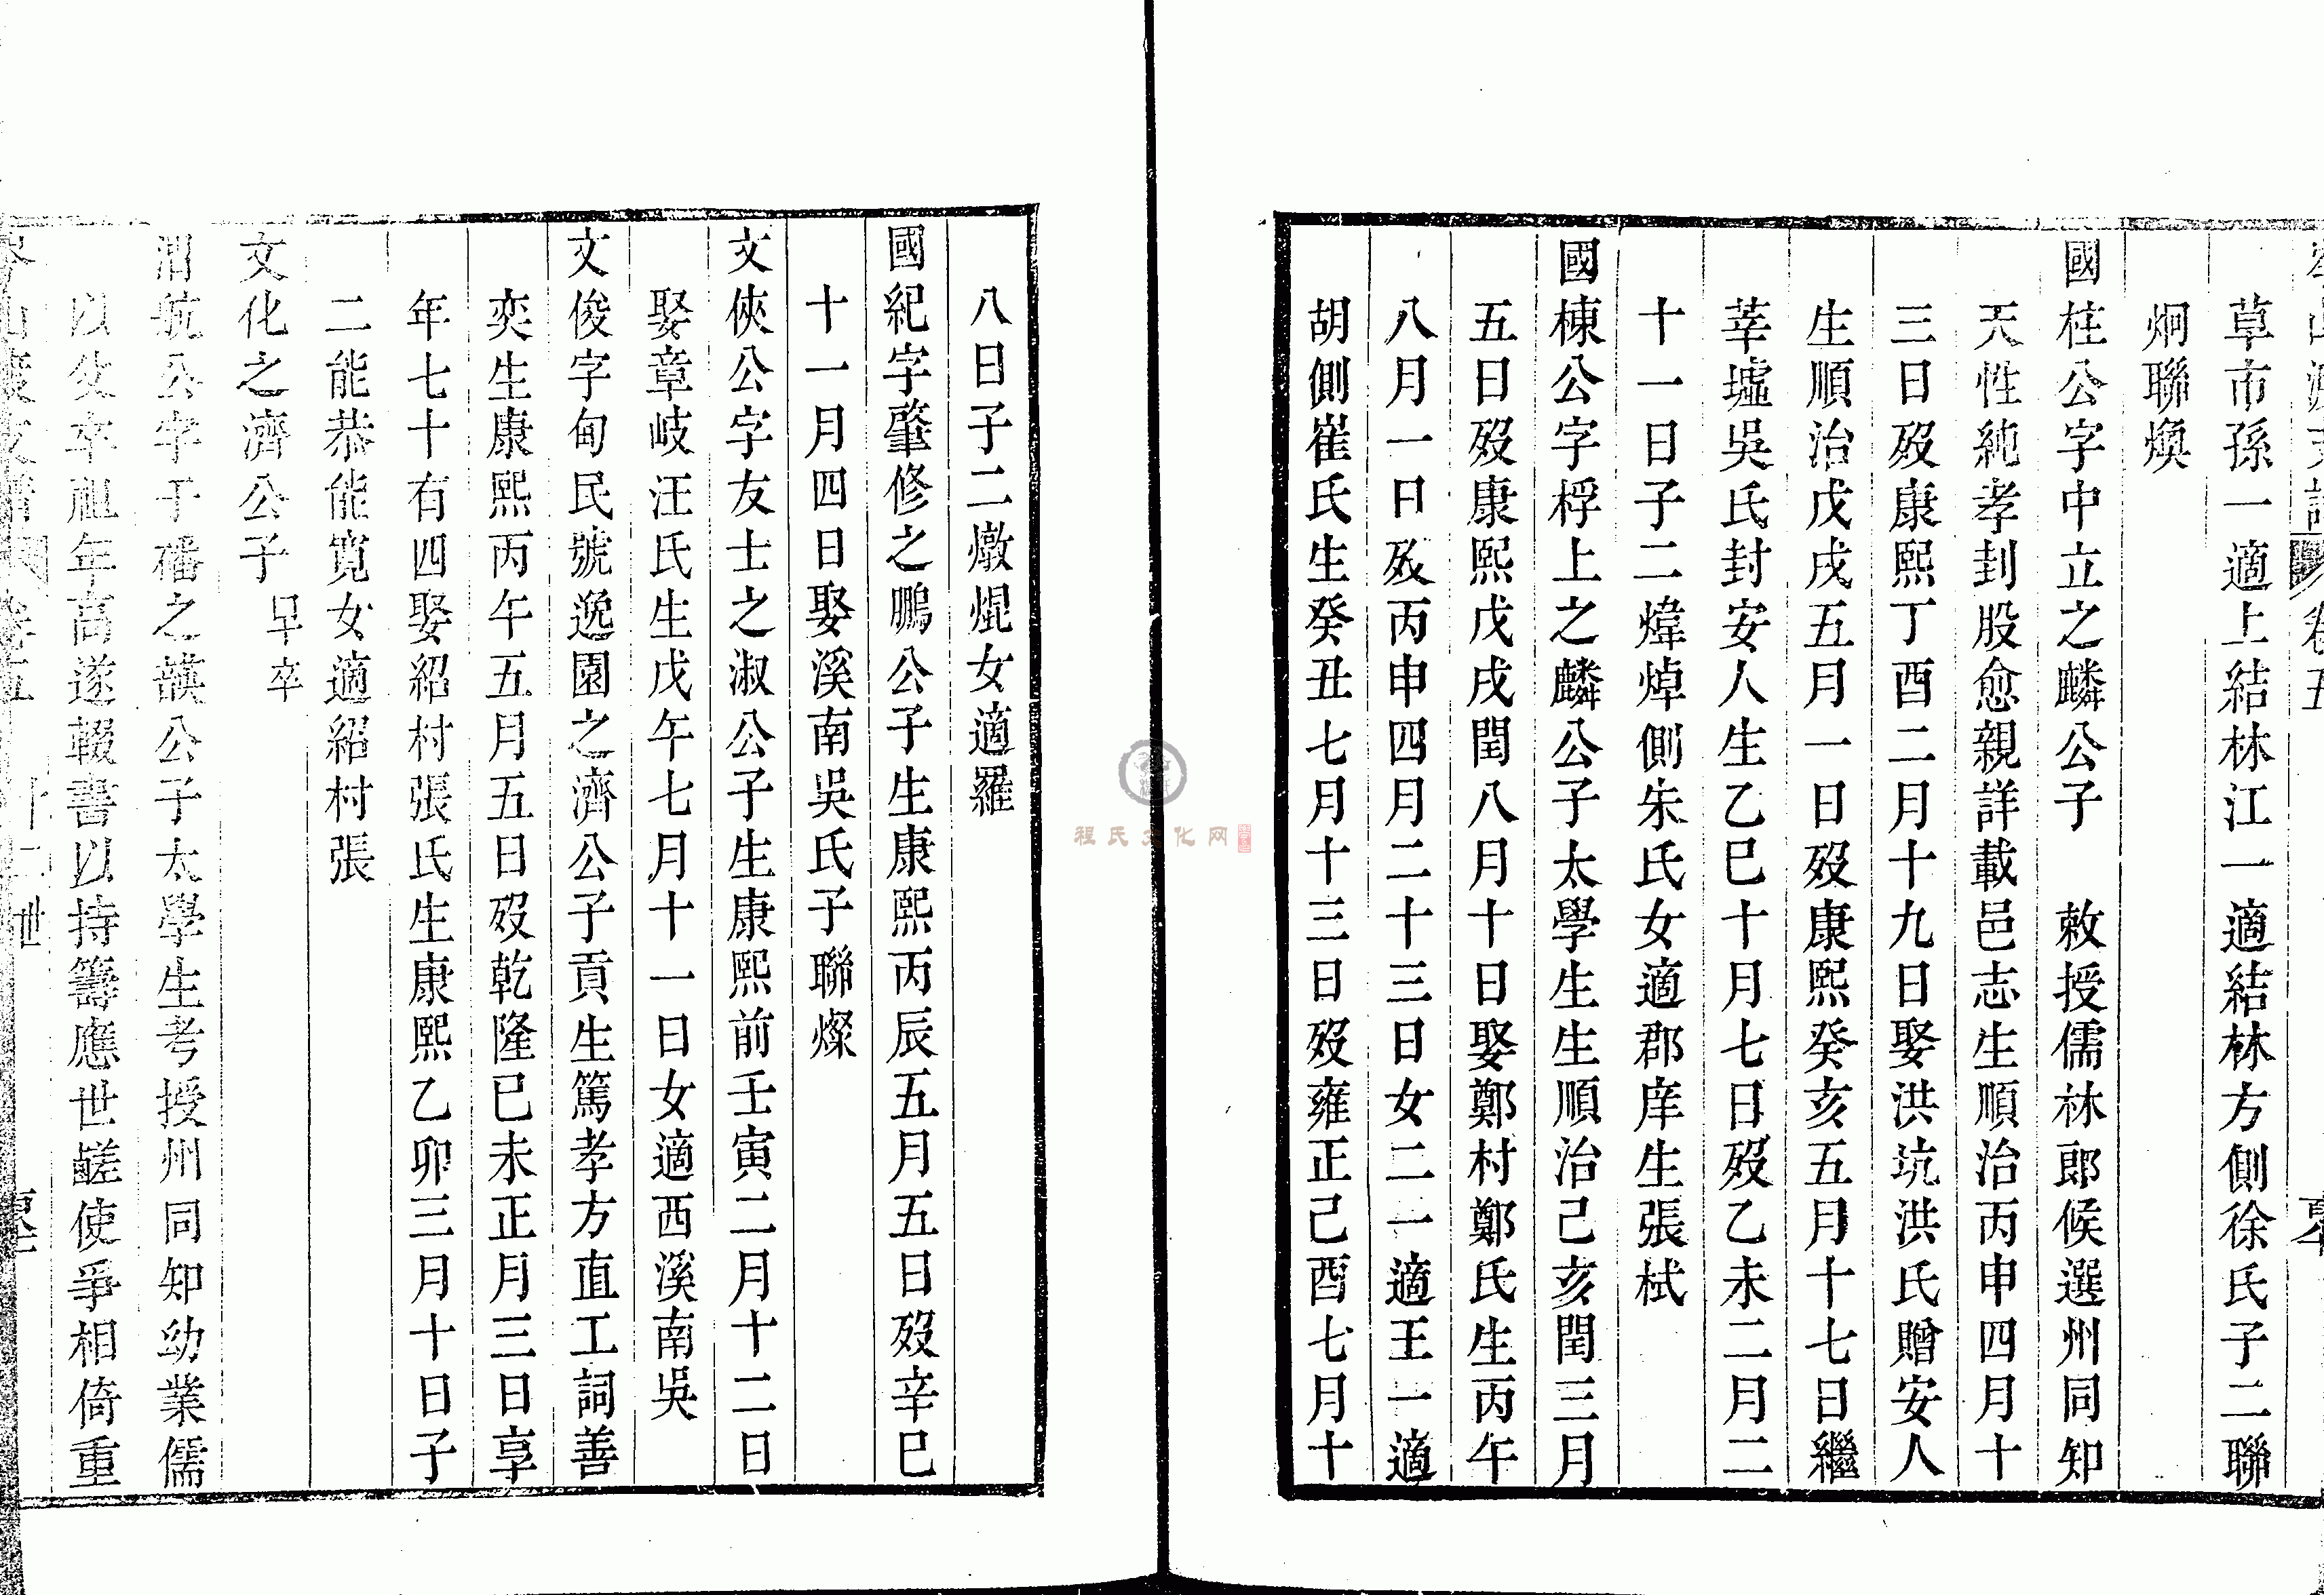 草市孫一適上結林江一適結林方側徐氏子二聯
炯聯煥
國柱公字中立之麟公子　敕授儒林郎候選州同知
天性純孝刲股愈親詳載邑志生順治丙申四月十
三日歿康熙丁酉二月十九日娶洪坑洪氏贈安人
生順治戊戌五月一日歿康熙癸亥五月十七日繼
莘墟吳氏封安人生乙巳十月七日歿乙未二月二
十一日子二煒焯側朱氏女適郡庠生張栻
國棟公字桴上之麟公子太學生生順治己亥閏三月
五日歿康熙戊戌閏八月十日娶鄭村鄭氏生丙午
八月一日歿丙申四月二十三日女二一適王一適
胡側崔氏生癸丑七月十三日歿雍正己酉七月十
八日子二燉焜女適羅
國紀字肇修之鵬公子生康熙丙辰五月五日歿辛巳
十一月四日娶溪南吳氏子聯燦
文俠公字友士之淑公子生康熙前壬寅二月十二日
娶章岐汪氏生戊午七月十一日女適西溪南吳
文俊字甸民號逸園之濟公子貢生篤孝方直工詞善
奕生康熙丙午五月五日歿乾隆己未正月三日享
年七十有四娶紹村張氏生康熙乙卯三月十日子
二能恭能寬女適紹村張
文化之濟公子早卒
涓航公字于磻之讃公子太學生考授州同知幼業儒
以父卒祖年高遂輟書以持籌應世鹺使爭相倚重
卷五　十二世
程氏文化网